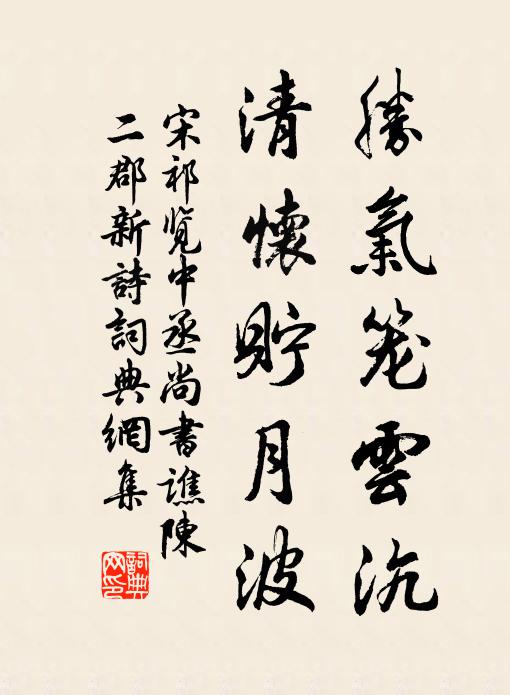 勝氣笼雲沇
清懷貯月波
宋祁览中丞尚書譙陳
二郡新詩詞典網集
詞典
网印